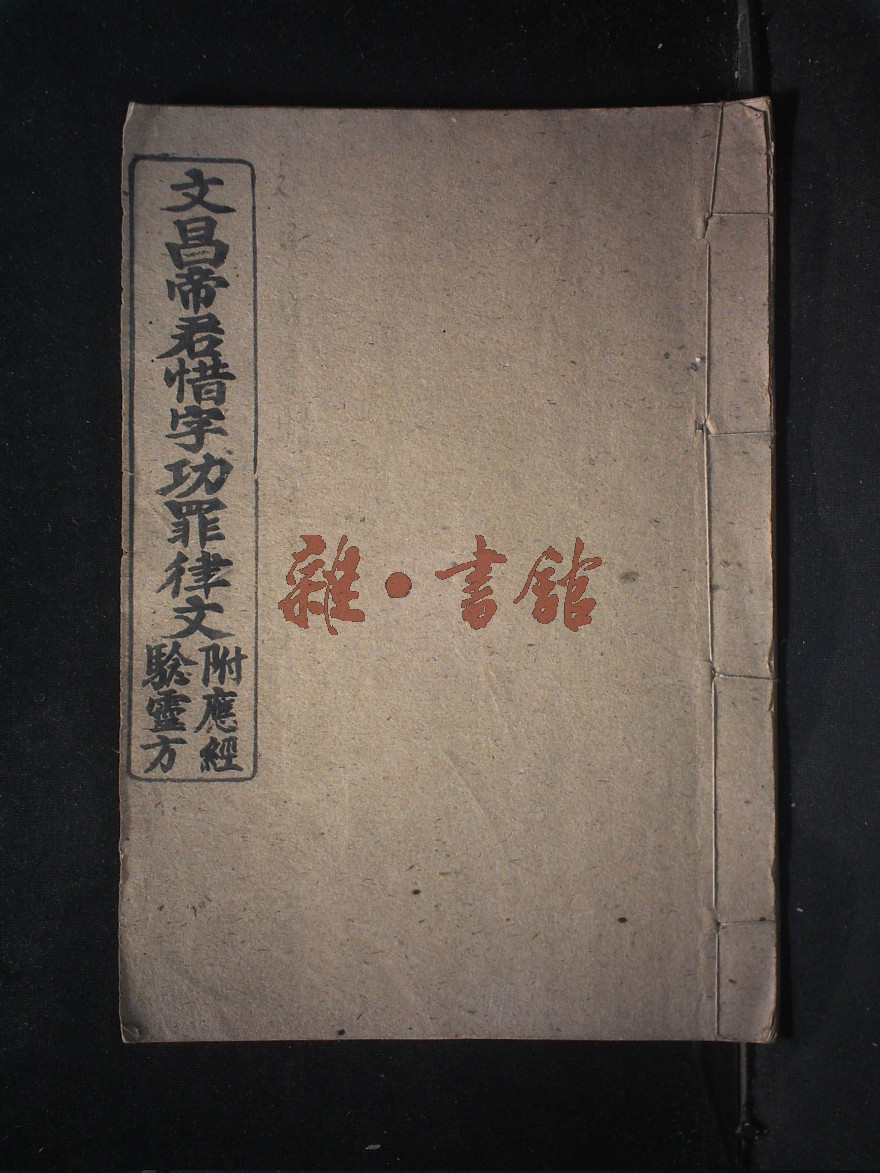 文昌帝君惜字功罪律文
附應經
驗靈方
雜·書館